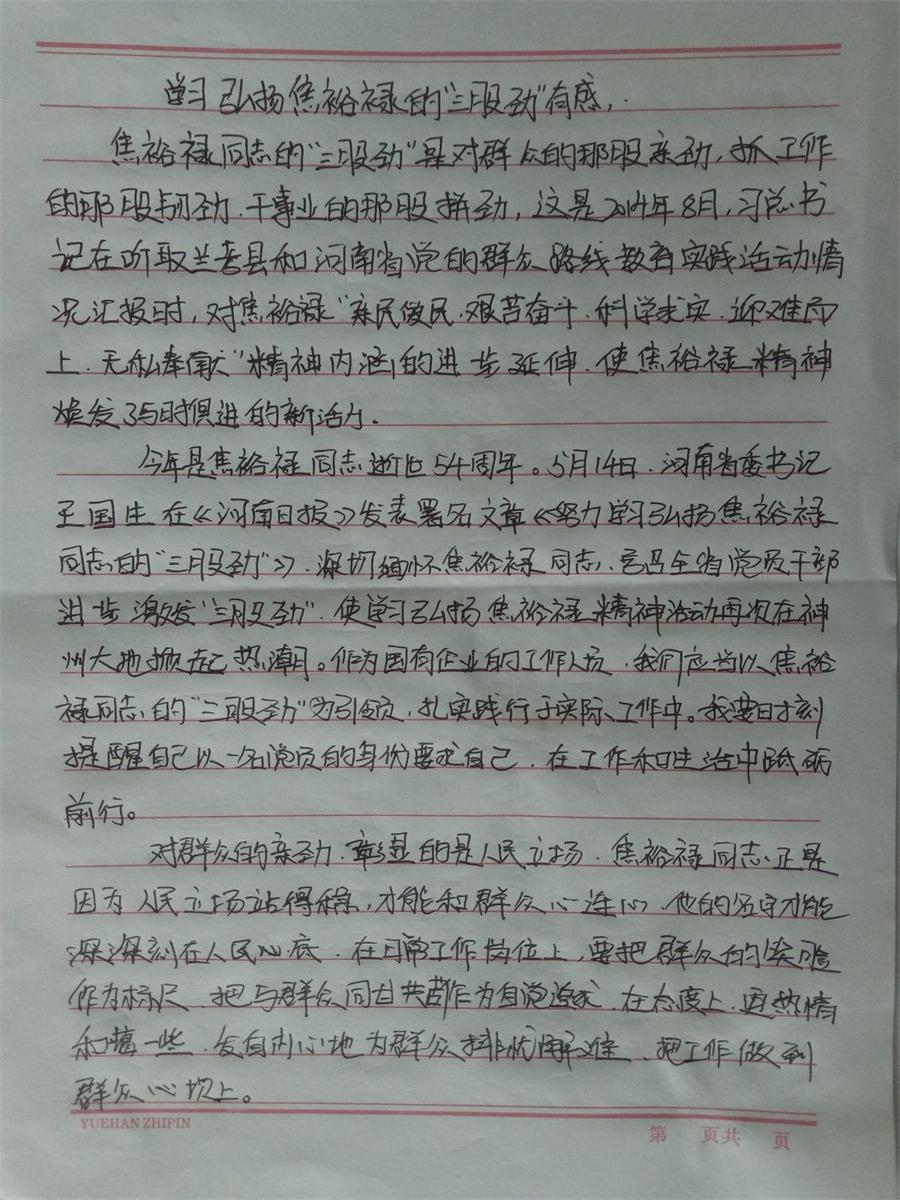 学习弘扬焦裕禄的“三股劲”有感.
焦裕禄同志的“三股劲”是对群众的那股亲劲,抓工作
的那股韧劲.干事业的那股拼劲,这是2014年8月,习总书
记在听取兰考县和河南省党的群众路线教育实践活动情
况汇报时,对焦裕禄“亲民爱民.艰苦奋斗.科学求实.迎难而
上.无私奉献”精神内涵的进步延伸.使焦裕禄精神
焕发了与时俱进的新活力.
今年是焦裕禄同志逝世54周年。5月14日.河南省委书记
王国生在《河南日报》发表署名文章《努力学习弘扬焦裕禄
同志的“三股劲”》.深切缅怀焦裕禄同志.号召全省党员干部
进步激发“三股劲”.使学习弘扬焦裕禄精神活动再次在神
州大地掀起热潮。作为国有企业的工作人员.我们应当以焦裕
禄同志的“三股劲”为引领,扎实践行于实际工作中。我要时刻
提醒自己以一名党员的身份要求自己.在工作和生活中砥砺
前行。
对群众的亲劲.彰显的是人民立场.焦裕禄同志正是
因为人民立场站得稳,才能和群众心连心.他的名字才能
深深刻在人民心底.在日常工作岗位上,要把群众的
作为标尺 把与群众同甘共苦作为自觉追求.在态度上.再热情
和蔼一些.发自内心地为群众排忧解难、把工作做到
群众心坎上。
YUEHAN ZHIPIN
第 页共 页